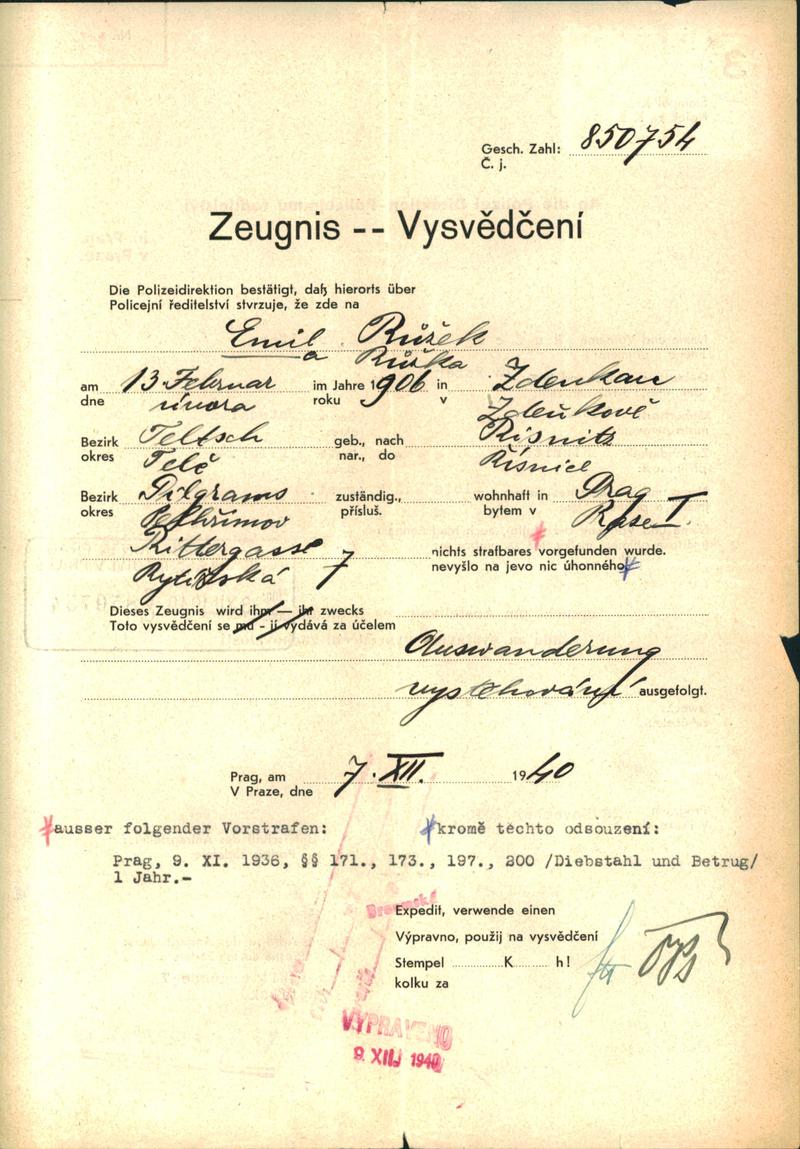 Gesch. Zahl: 850754
Č. j.
Zeugnis -- Vysvědčení
Die Polizeidirektion bestätigt, daß hierorts über
Policejní ředitelství stvrzuje, že zde na
Emil Růžek
a Růžka
am 13. Februar im Jahre 1906 in Zdenkau
dne února roku v Zdeňkově
Bezirk Teltsch geb., nach Řisnitz
okres Telč nar., do Řísnice
Bezirk Pilgrams zuständig., wohnhaft in Prag I
okres Pelhřimov přísluš. bytem v Praze I.
Rittergasse 7 nichts strafbares vorgefunden wurde.
Rytířská nevyšlo na jevo nic úhonného
Dieses Zeugnis wird ihm — ihr zwecks
Toto vysvědčení se mu - jí vydává za účelem
Auswanderung
vystěhování ausgefolgt.
Prag, am 7. XII. 1940
V Praze, dne
ausser folgender Vorstrafen: kromě těchto odsouzení:
Prag, 9. XI. 1936, §§ 171., 173., 197., 200 /Diebstahl und Betrug/
1 Jahr.-
Expedit, verwende einen
Výpravno, použij na vysvědčení
Stempel K h!
kolku za
VYPRAVENO
9. XII. 1940